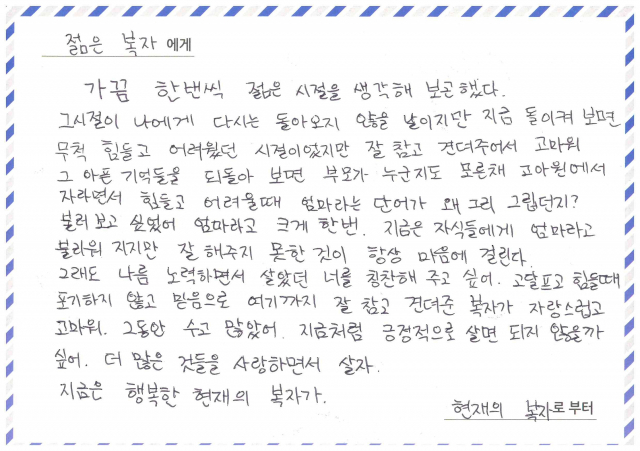 젊은 복자 에게
가끔 한번씩 젊은 시절을 생각해 보곤했다.
그시절이 나에게 다시는 돌아오지 않을 날이지만 지금 돌이켜 보면
무척 힘들고 어려웠던 시절이었지만 잘 참고 견뎌주어서 고마워
그 아픈 기억들을 되돌아 보면 부모가 누군지도 모른채 고아원에서
자라면서 힘들고 어려울때 엄마라는 단어가 왜 그리 그립던지?
불러 보고 싶었어 엄마라고 크게 한번. 지금은 자식들에게 엄마라고
불리워 지지만 잘 해주지 못한 것이 항상 마음에 걸린다.
그래도 나름 노력하면서 살았던 너를 칭찬해 주고 싶어. 고달프고 힘들때
포기하지 않고 믿음으로 여기까지 잘 참고 견뎌준 복자가 자랑스럽고
고마워. 그동안 수고 많았어. 지금처럼 긍정적으로 살면 되지 않을까
싶어. 더 많은 것들을 사랑하면서 살자.
지금은 행복한 현재의 복자가.
현재의 복자로부터